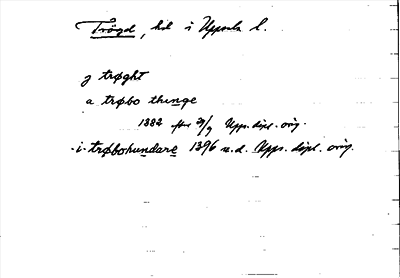 Trögd, hd i Uppsala l.
ȝ trøght
a trøbo thinge
1382 efter 29/9 Upps. dipl. orig.
-i- trøbohundare 1396 u.d. Upps. dipl. orig.